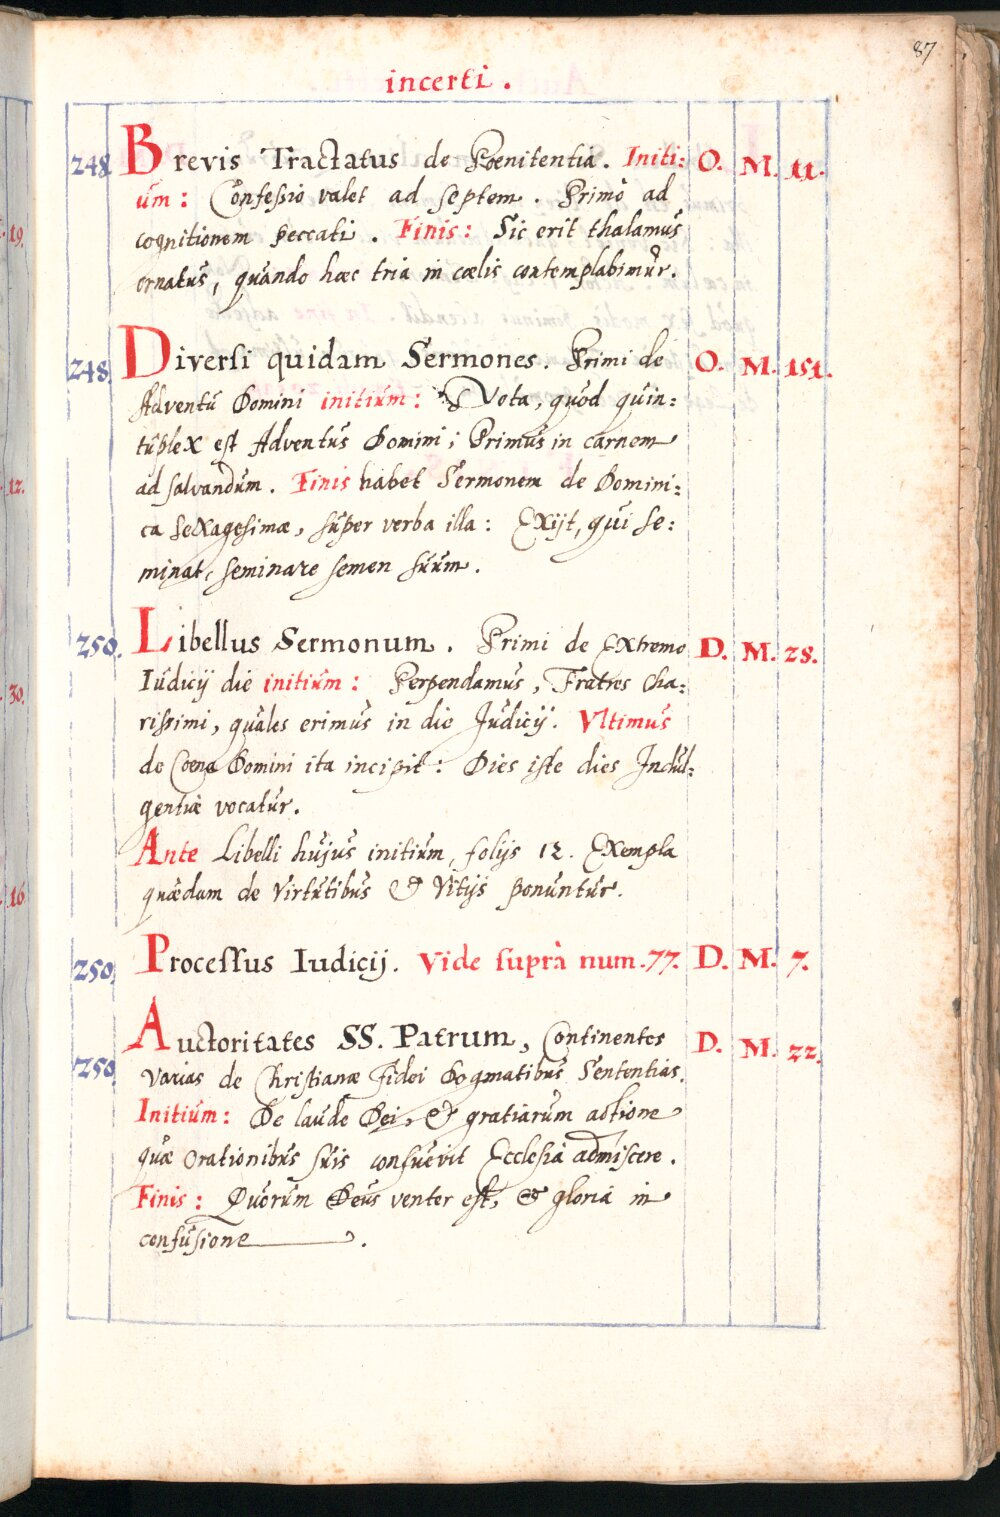 87
incerti .
248 Brevis Tractatus de Poenitentia. Initi: O. M. 11.
um : Confessio valet ad septem . Primò ad
cognitionem peccati . Finis : Sic erit thalamus
ornatus, quando haec tria in coelis contemplabimur.
248 Diversi quidam Sermones. Primi de O. M. 151.
Adventu Domini initium : Nota, quòd quin:
tuplex est Adventus Domini; Primus in carnem
ad salvandum . Finis habet Sermonem de Domini:
ca Sexagesimae, super verba illa : Exijt, qui se:
minat, seminare semen suum .
250. Libellus Sermonum . Primi de Extremo D. M. 28.
Iudicij die initium : Perpendamus, Fratres cha:
rissimi, quales erimus in die Judicij. Ultimus
de Coena Domini ita incipit : Dies iste dies Indul:
gentiae vocatur.
Ante Libelli hujus initium, folijs 12. Exempla
quaedam de Virtutibus & Vitijs ponuntur.
250. Processus Iudicij. Vide suprà num. 77. D. M. 7.
250 Auctoritates SS. Patrum, Continentes D. M. 22.
varias de Christianae Fidei Dogmatibus Sententias.
Initium : De laude Dei, & gratiarum actione
quae orationibus suis consuevit Ecclesia admiscere .
Finis : Quorum Deus venter est, & gloria in
confusione .
19.
12.
30.
16